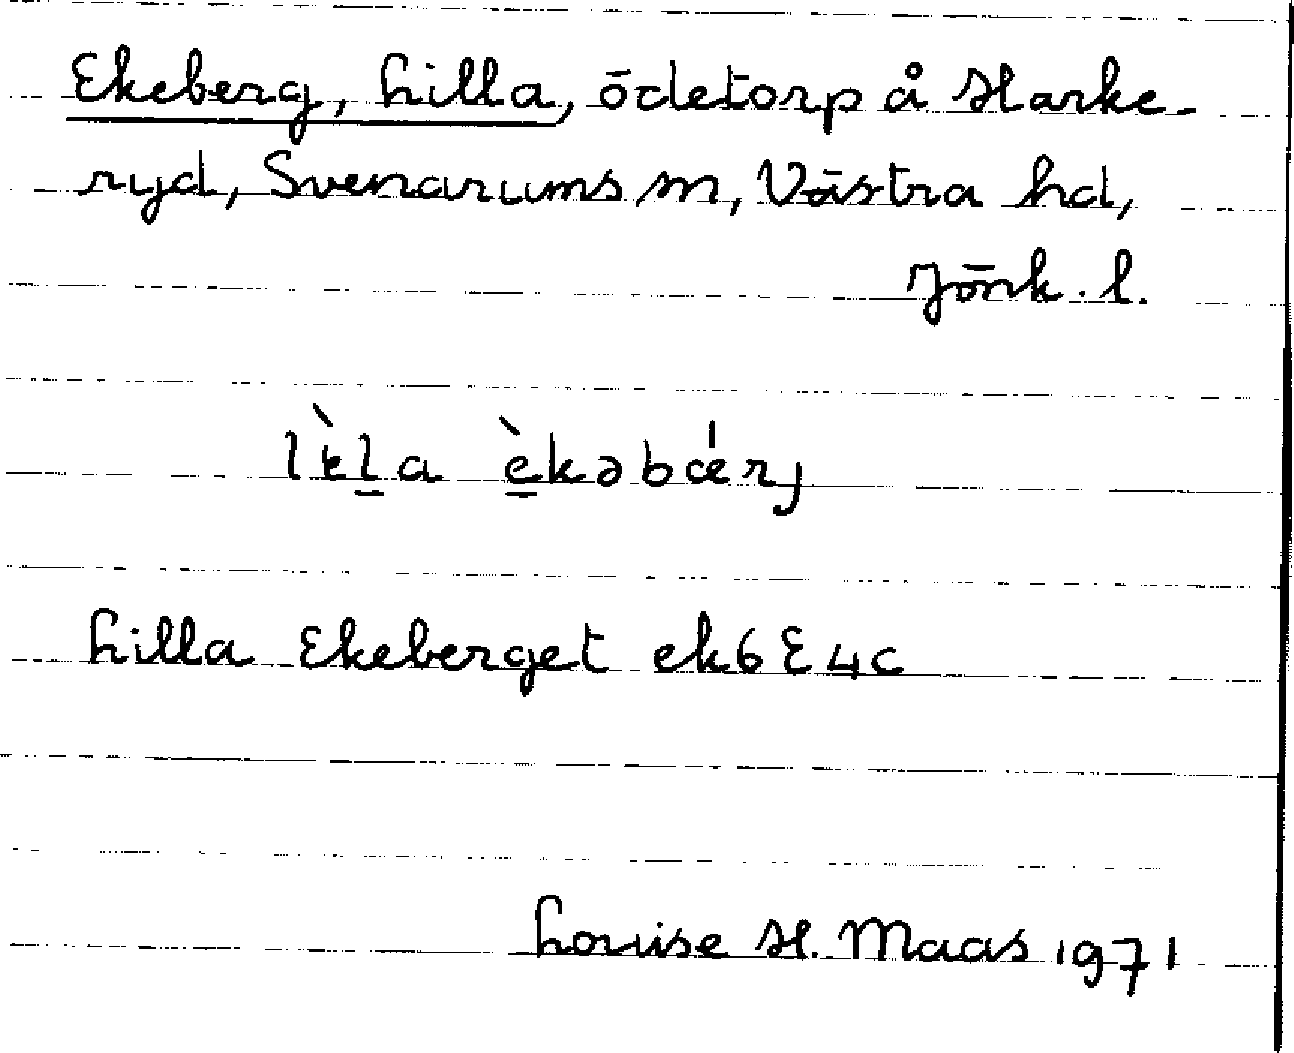 Ekeberg, Lilla, ödetorp å Harke-
ryd, Svenarums sn, Västra hd,
Jönk. l.
lὶla èkəbǽrj
Lilla Ekeberget ek6E4c
Louise H. Maas 1971